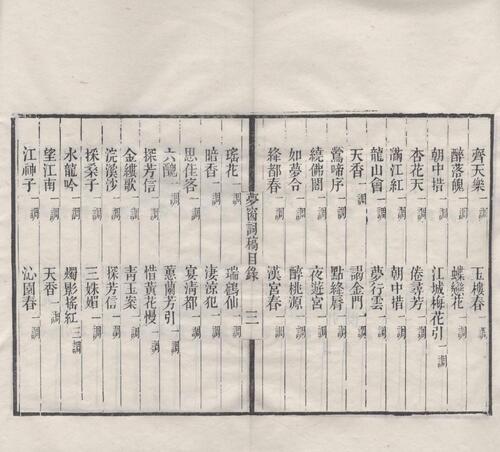 齊天樂一調　玉樓春一調
醉落魄一調　蝶戀花一調
朝中措一調　江城梅花引一調
杏花天一調　倦尋芳一調
滿江紅一調　朝中措一調
龍山會一調　夢行雲一調
天香一調　謁金門一調
鶯啼序一調　點絳脣一調
繞佛閣一調　夜遊宮一調
如夢令一調　醉桃源一調
絳都春一調　漢宮春一調
夢窗詞稿目錄　三
瑤花一調　瑞鶴仙一調
暗香一調　淒涼犯一調
思佳客一調　宴清都一調
六醜一調　蕙蘭芳引一調
探芳信一調　惜黃花慢一調
金縷歌一調　青玉案一調
浣溪沙一調　探芳信一調
採桑子一調　三姝媚一調
水龍吟一調　燭影搖紅三調
望江南一調　天香一調
江神子一調　沁園春一調